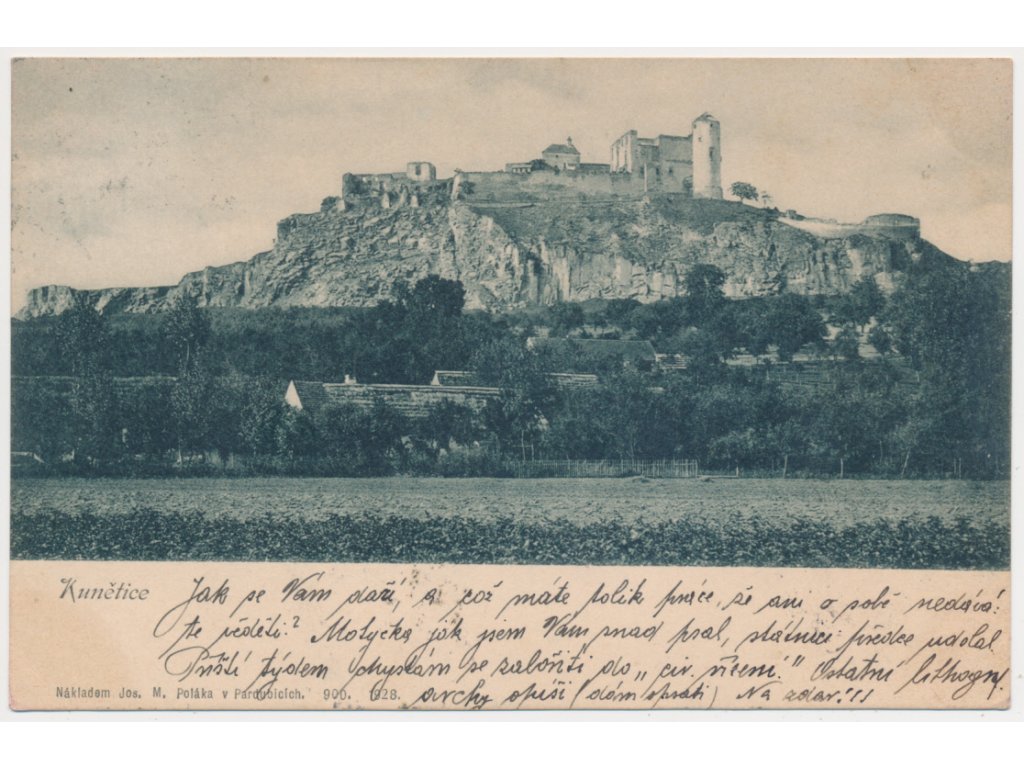 Kunětice
Jak se Vám daří, a což máte tolik práce, že ani o sobě nedává-
te věděti? Motycka, jak jsem Vám snad psal, státnici předce udělal.
Příští týden chystám se založiti do „civ. řízení." Ostatní lithogr.
archy opíši (dám spráti) Na zdar!!!
Nákladem Jos. M. Poláka v Pardubicích. 900. 1928.